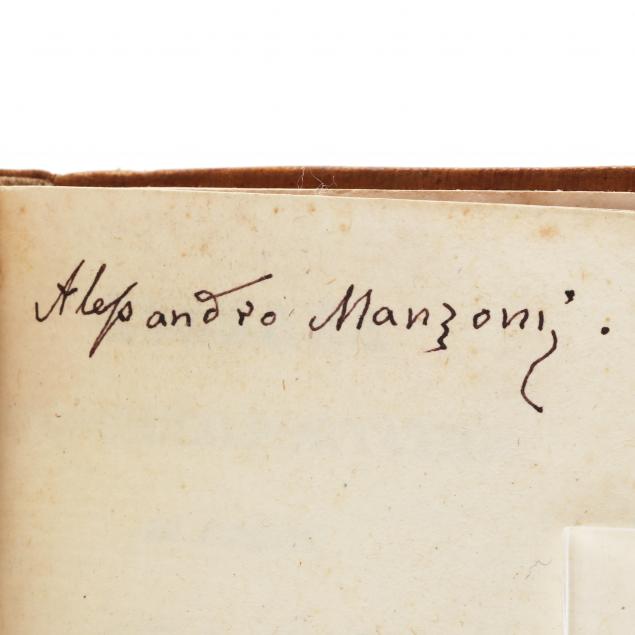 Alessandro Manzoni.